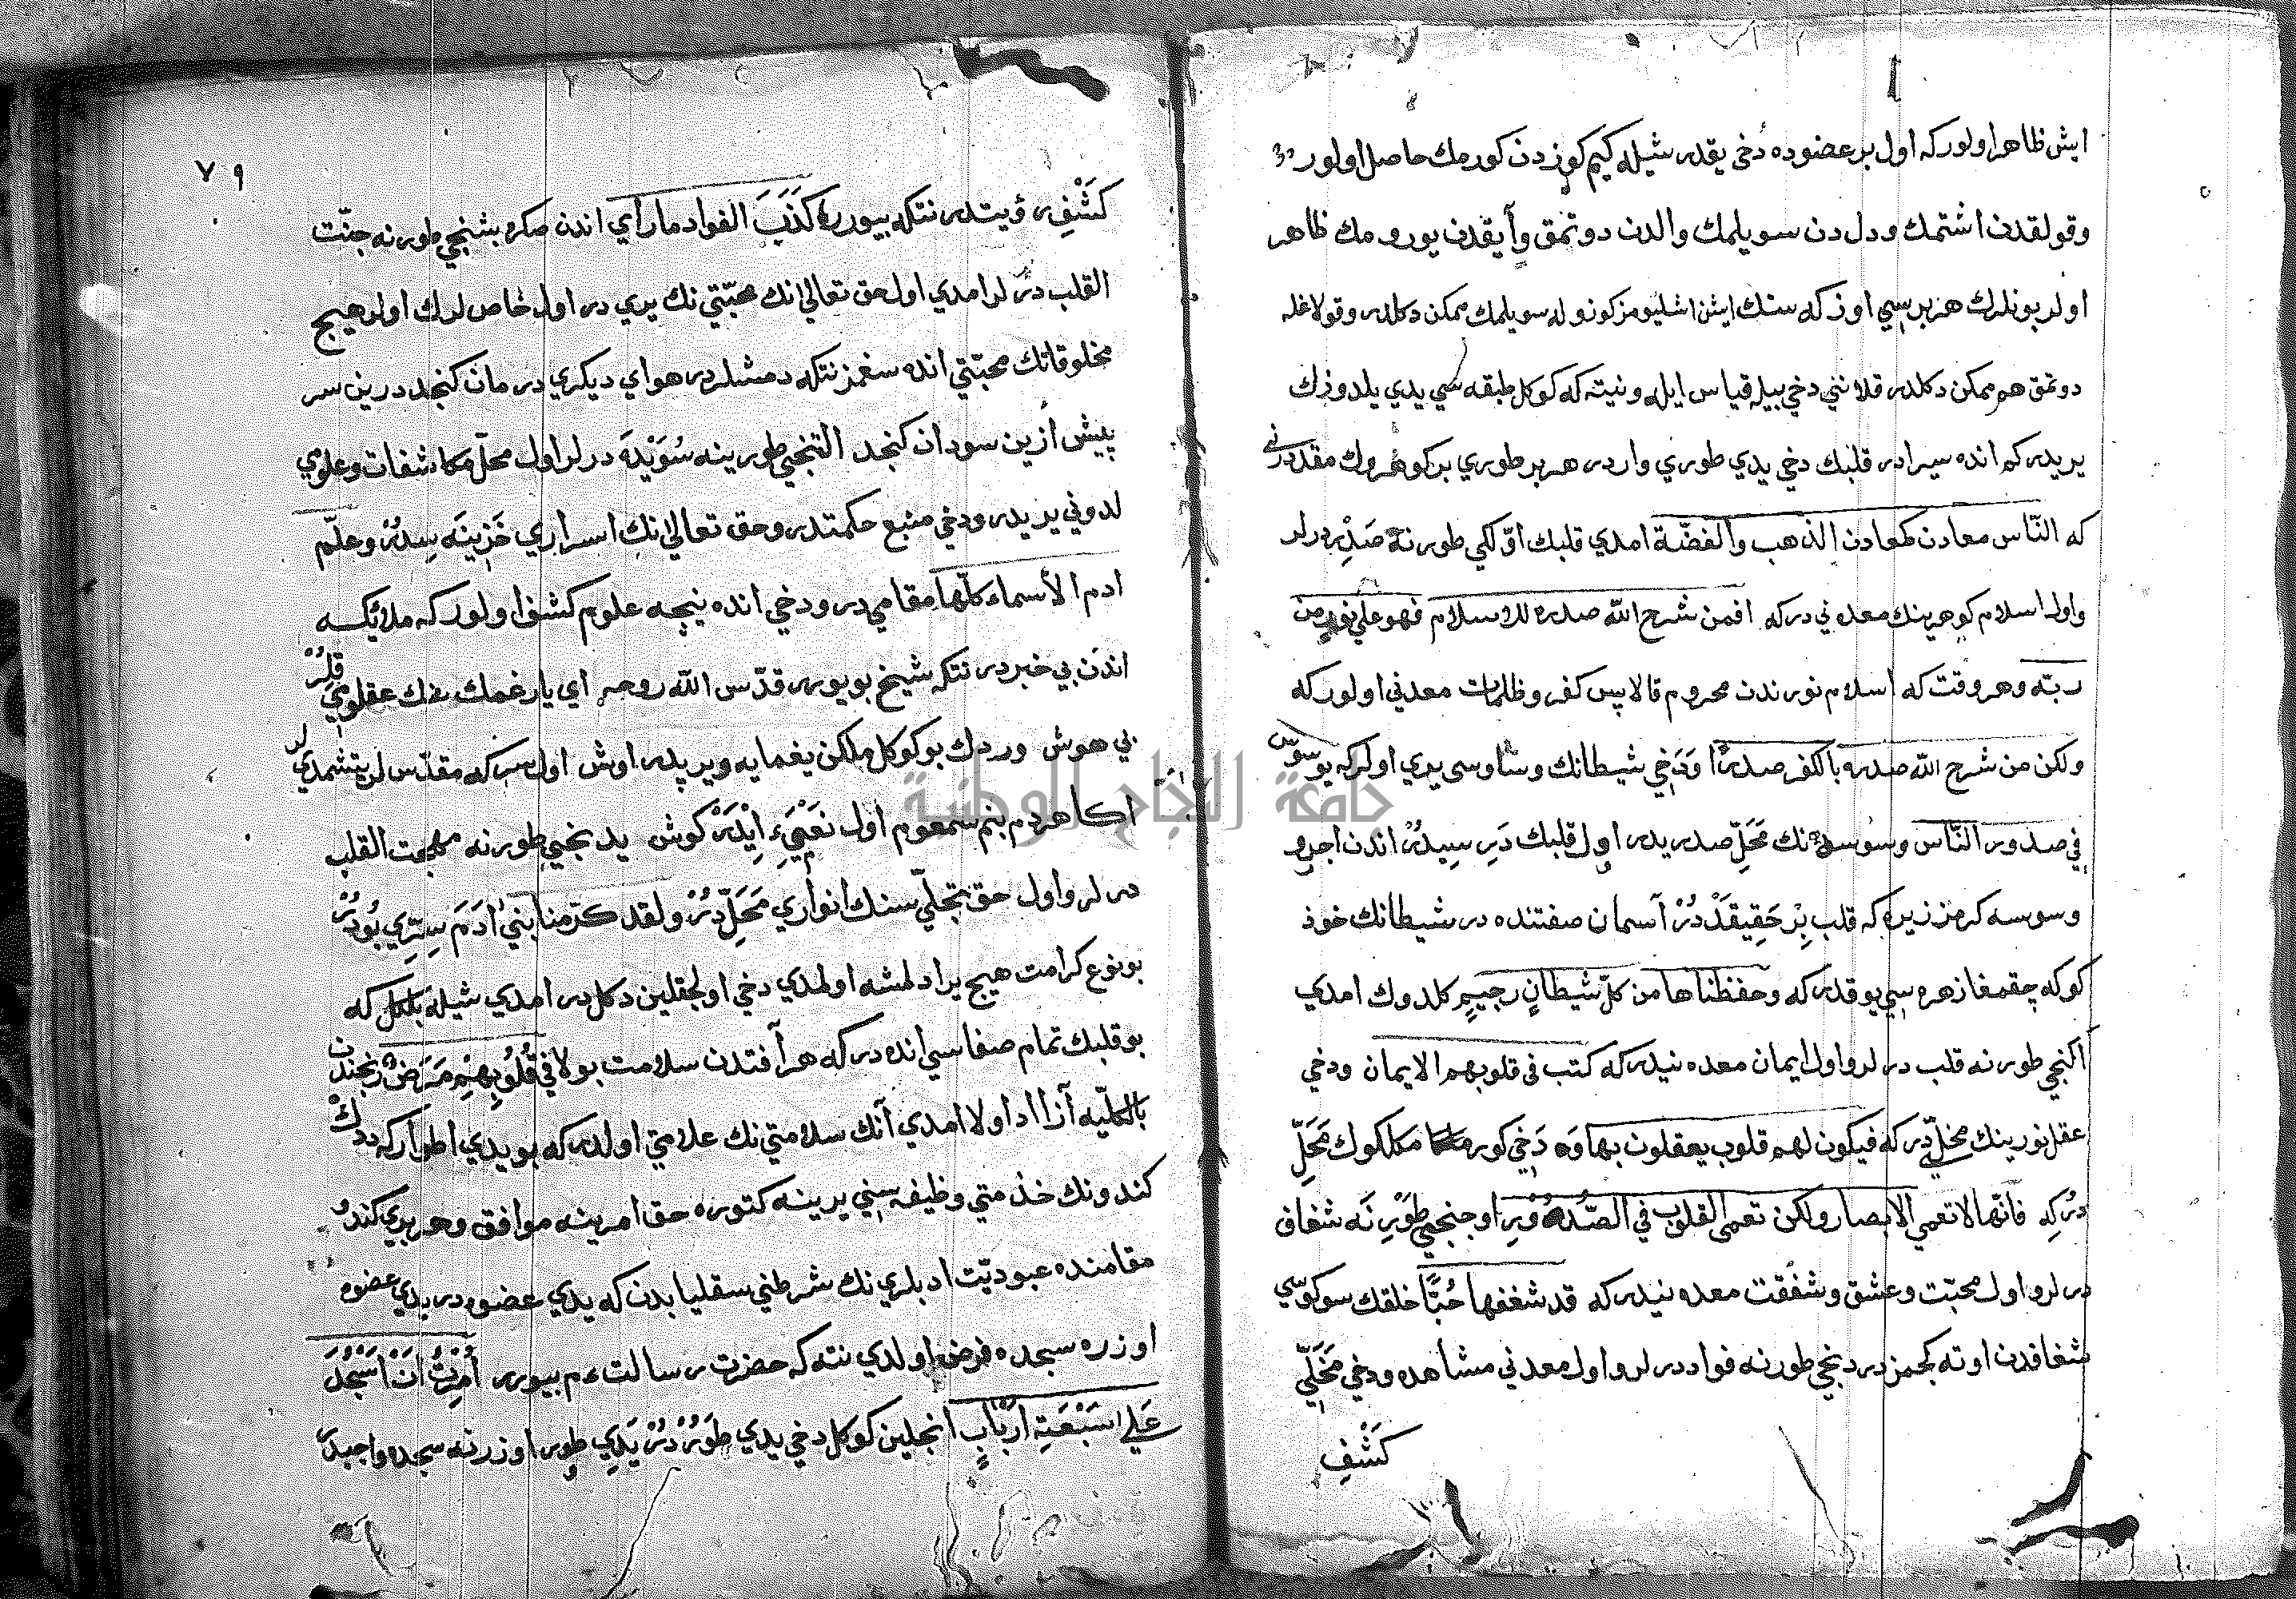 ايش ظاهر اولور كه اول بر عضوده دخي يقدر شيله كيم كوزدن كورمك حاصل اولور
وقولقدن اشتمك ودل دن سويلمك والدن دوتمق وآيقدن يورومك ظاهر
اولر بونلرك هر برسي اوزكه سنك ايشن اشليومز كوزوله سويلمك ممكن دكلدر وقولاغله
دوتمق هم ممكن دكلدر قلاننى دخي بيله قياس ايله ونيته كه كوكل طبقه سي يدي يلدوزك
يريدر كم انده سيرادر قلبك دخي يدي طوري واردر هر بر طوري بر كوهروك مقددرنى
كه النّاس معادن كمعادن الذهب والفضّة امدي قلبك اوّلكي طورنه صَدْر درلر
واول اسلام كوهرينك معدنى دركه افمن شرح اللّه صدره للاسلام فهو على نور من
ربّه وهر وقت كه اسلام نورندن محروم قالا پس كفر وظلمات معدنى اولور كه
ولكن من شرح اللّه صدره بالكفر صدرًا وَدَخِي شيطانك وساوسى يري اولركه يوسوس
في صدور النّاس وسوسه نك مَحَلّ صدريدر اول قلبك دَرِ سِيدُرْ اندن اجرو
وسوسه كرمز زيره كه قلب بِرْ حَقِيقَدْ دُرْ آسمان صفتنده در شيطانك خوذ
كوكه چقمغا زهره سي يوقدر كه وحفظناها من كلّ شيطانٍ رجيمٍ كلدوك امدي
اكنجي طورنه قلب درلر واول ايمان معدنيدر كه كتب فى قلوبهم الايمان ودخي
عقل نورينك محلّ دركه فيكون لهم قلوب يعقلون بها وَه دَخِي كورمكلكوك مَحَلِّ
دُركِه فانّها لا تعمي الابصار ولكن تعمى القلوب في الصّدور اوجنجي طَوْرِنَه شغاف
درلر واول محبّت وعشق وشفقت معدنيدر كه قد شغفها حُبًّا خلقك سوكوسي
شغافدن اوته كجمز دردنجي طورنه فواد درلر واول معدنى مشاهده ودخي مَحَلِّ
كَشْفِ
٧٩
كَشْفِ رؤيتدر نتكه بيورر ما كَذَبَ الفواد ما راي اندن صكره بشنجي طورنه جنّت
القلب درلر امدي اول حق تعالى نك محبّتي نك يري در اول خاص لرك اولر هيج
مخلوقاتك محبّتي انده سغمز نتكه دمشلردر هواي ديكري در مان كنجد درين سر
پيش ازين سودان كنجد التنجي طورينه سُوَيْدَه درلر اول محلّ مكاشفات وعلوم
لدوني يريدر ودخي منبع حكمتدر وحق تعالى نك اسراري خَزِينَه سِدُرْ وعلّم
ادم الأسماء كلّها مقامي در ودخي انده نيجه علوم كشف اولور كه ملائكه
اندن بي خبردر نتكه شيخ بويورر قدّس اللّه روحه اي يار غمك عقلومي قلِرْ
بي هوش وردك بو كوكل ملكن يغمايه ويريدر اوش اول سركه مقدّس لر يتشمدي لر
اكا هردم بنم سمعوم اول نَغْمَيءِ ايْدَرْ كوش يدنجي طورنه مهجت القلب
درلر واول حق تجلّي سنك انواري مَحَلِّ دُرْ ولقد كرّمنا بني ادَمَ سِرّي بُودُرْ
بو نوع كرامت هيج يرادلمشه اولمدي دخي اولجقلين دكل در امدي شيله بلكل كه
بو قلبك تمام صفاسي انده در كه هر آفتدن سلامت بولا في قُلُوبِهِمْ مَرَضٌ رنجندن
بالكلّيه آزااد اولا امدي آنك سلامتي نك علامتي اولدر كه بو يدي اطوار كه ددك
كندونك خذمتي وظيفه سني يرينه كتوره حق امرينه موافق وهر بري كندو
مقامنده عبوديّت ادبلري نك شرطني سقليا بدن كه يدي عضوه در يدي عضوه
اوزره سجده فرض اولدي نته كه حضرت رسالت ءم بيورر أُمِرْتُ اَنْ اَسْجُدَ
عَلي سَبْعَتِهِ ارْبابٍ انجلين كوكل دخي يدي طَوَرْ دُرْ يَدِي طور اوزرنه سجده واجبدر